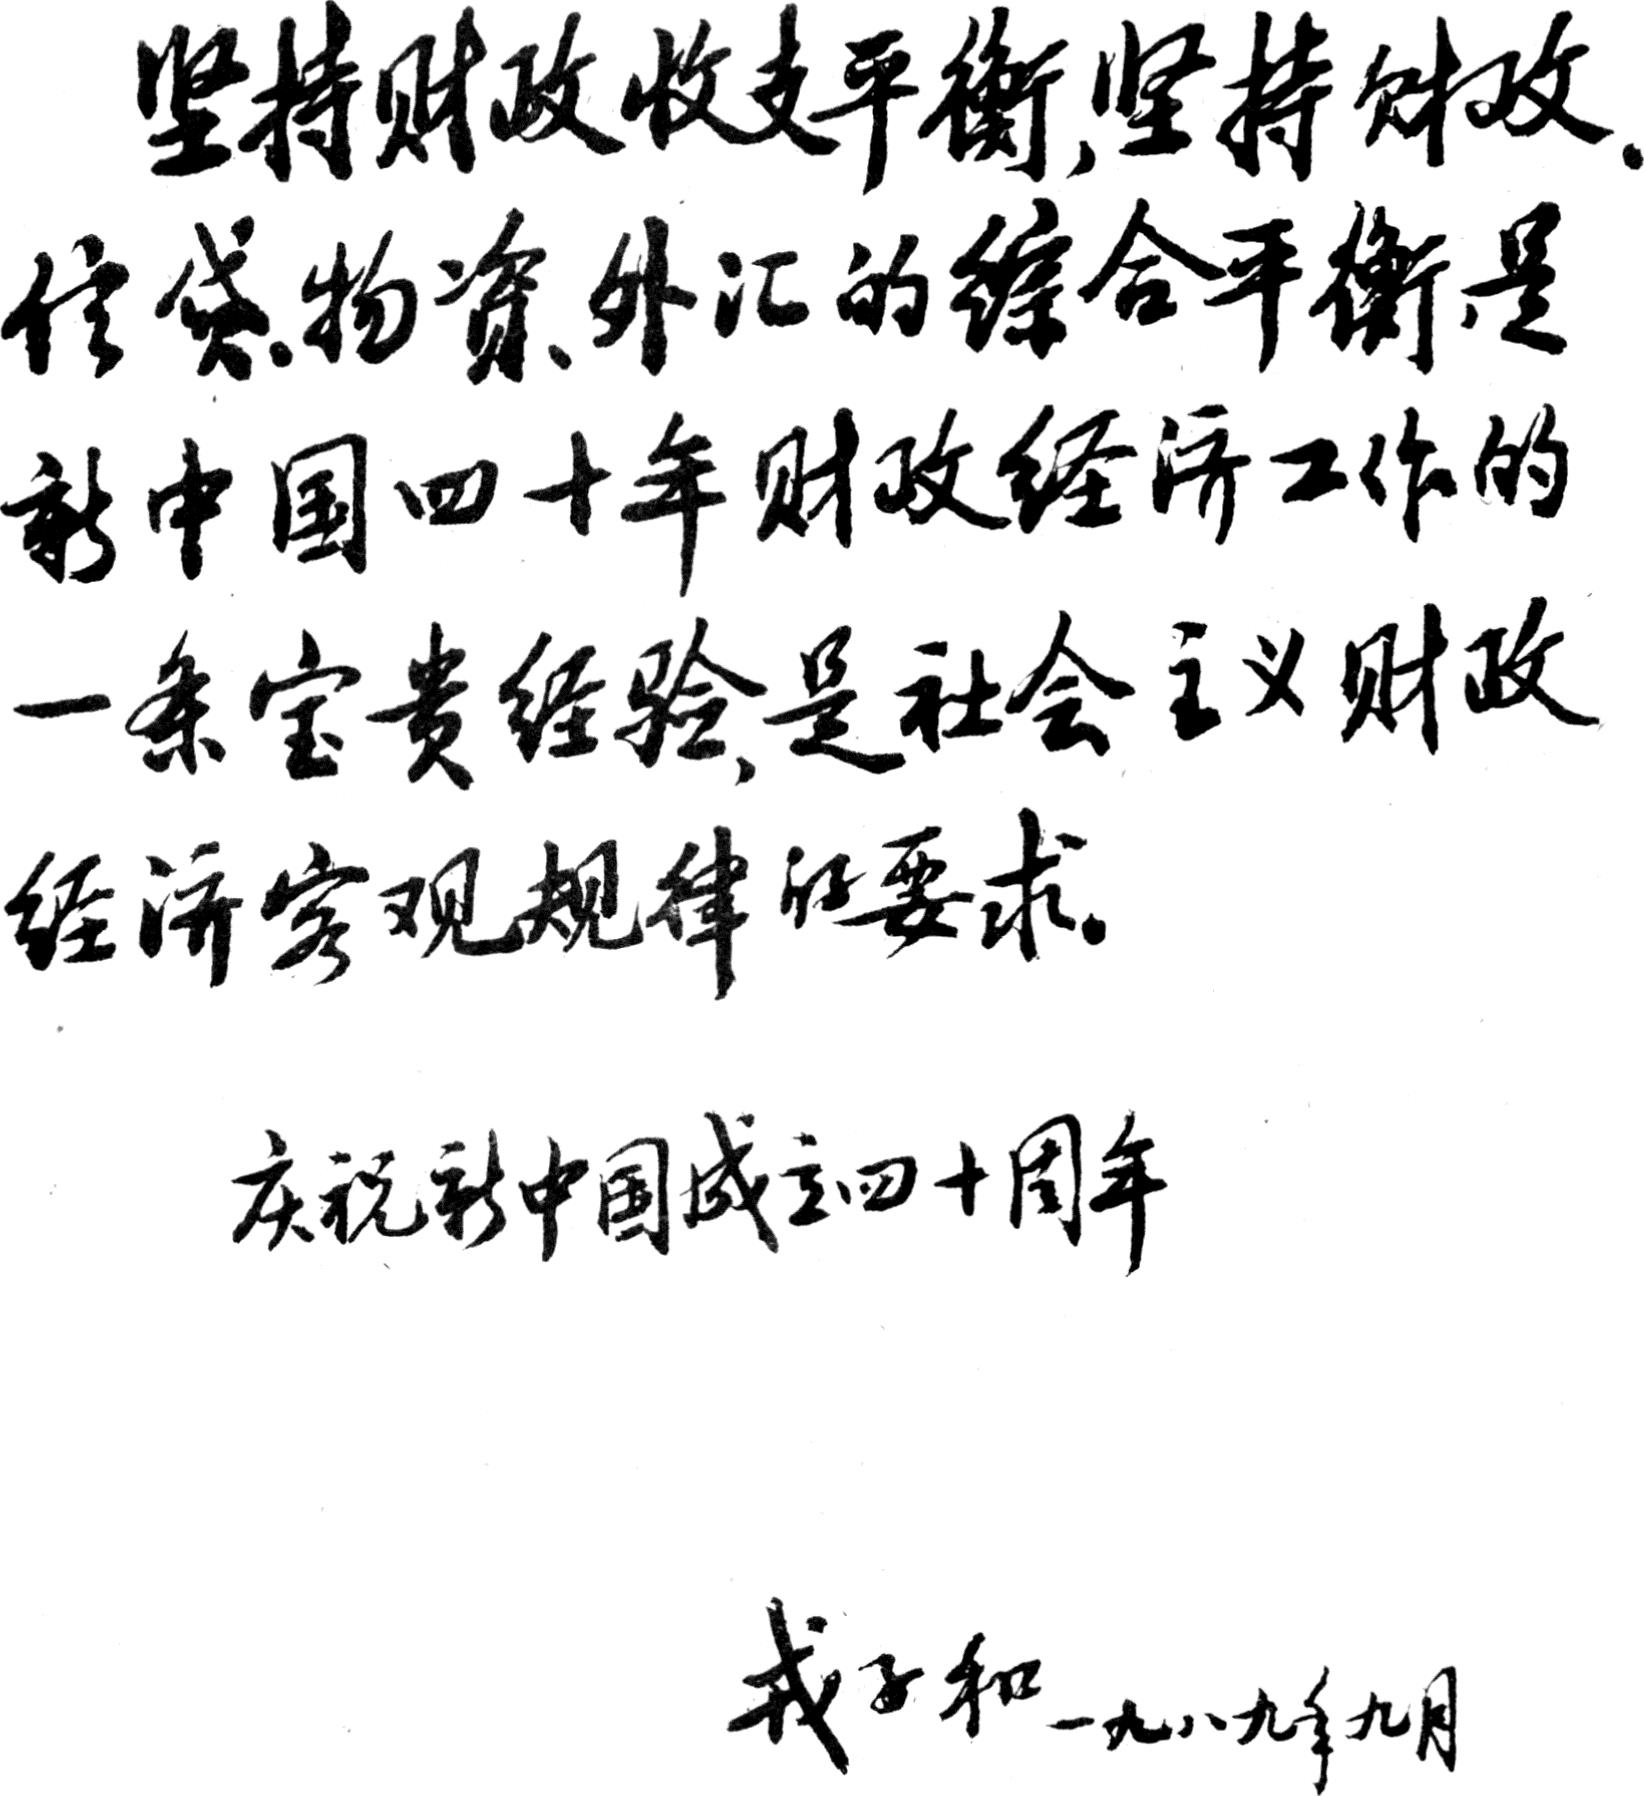 坚持财政收支平衡，坚持财政、
信贷、物资、外汇的综合平衡是
新中国四十年财政经济工作的
一条宝贵经验，是社会主义财政
经济客观规律的要求。
庆祝新中国成立四十周年
戎子和 一九八九年九月